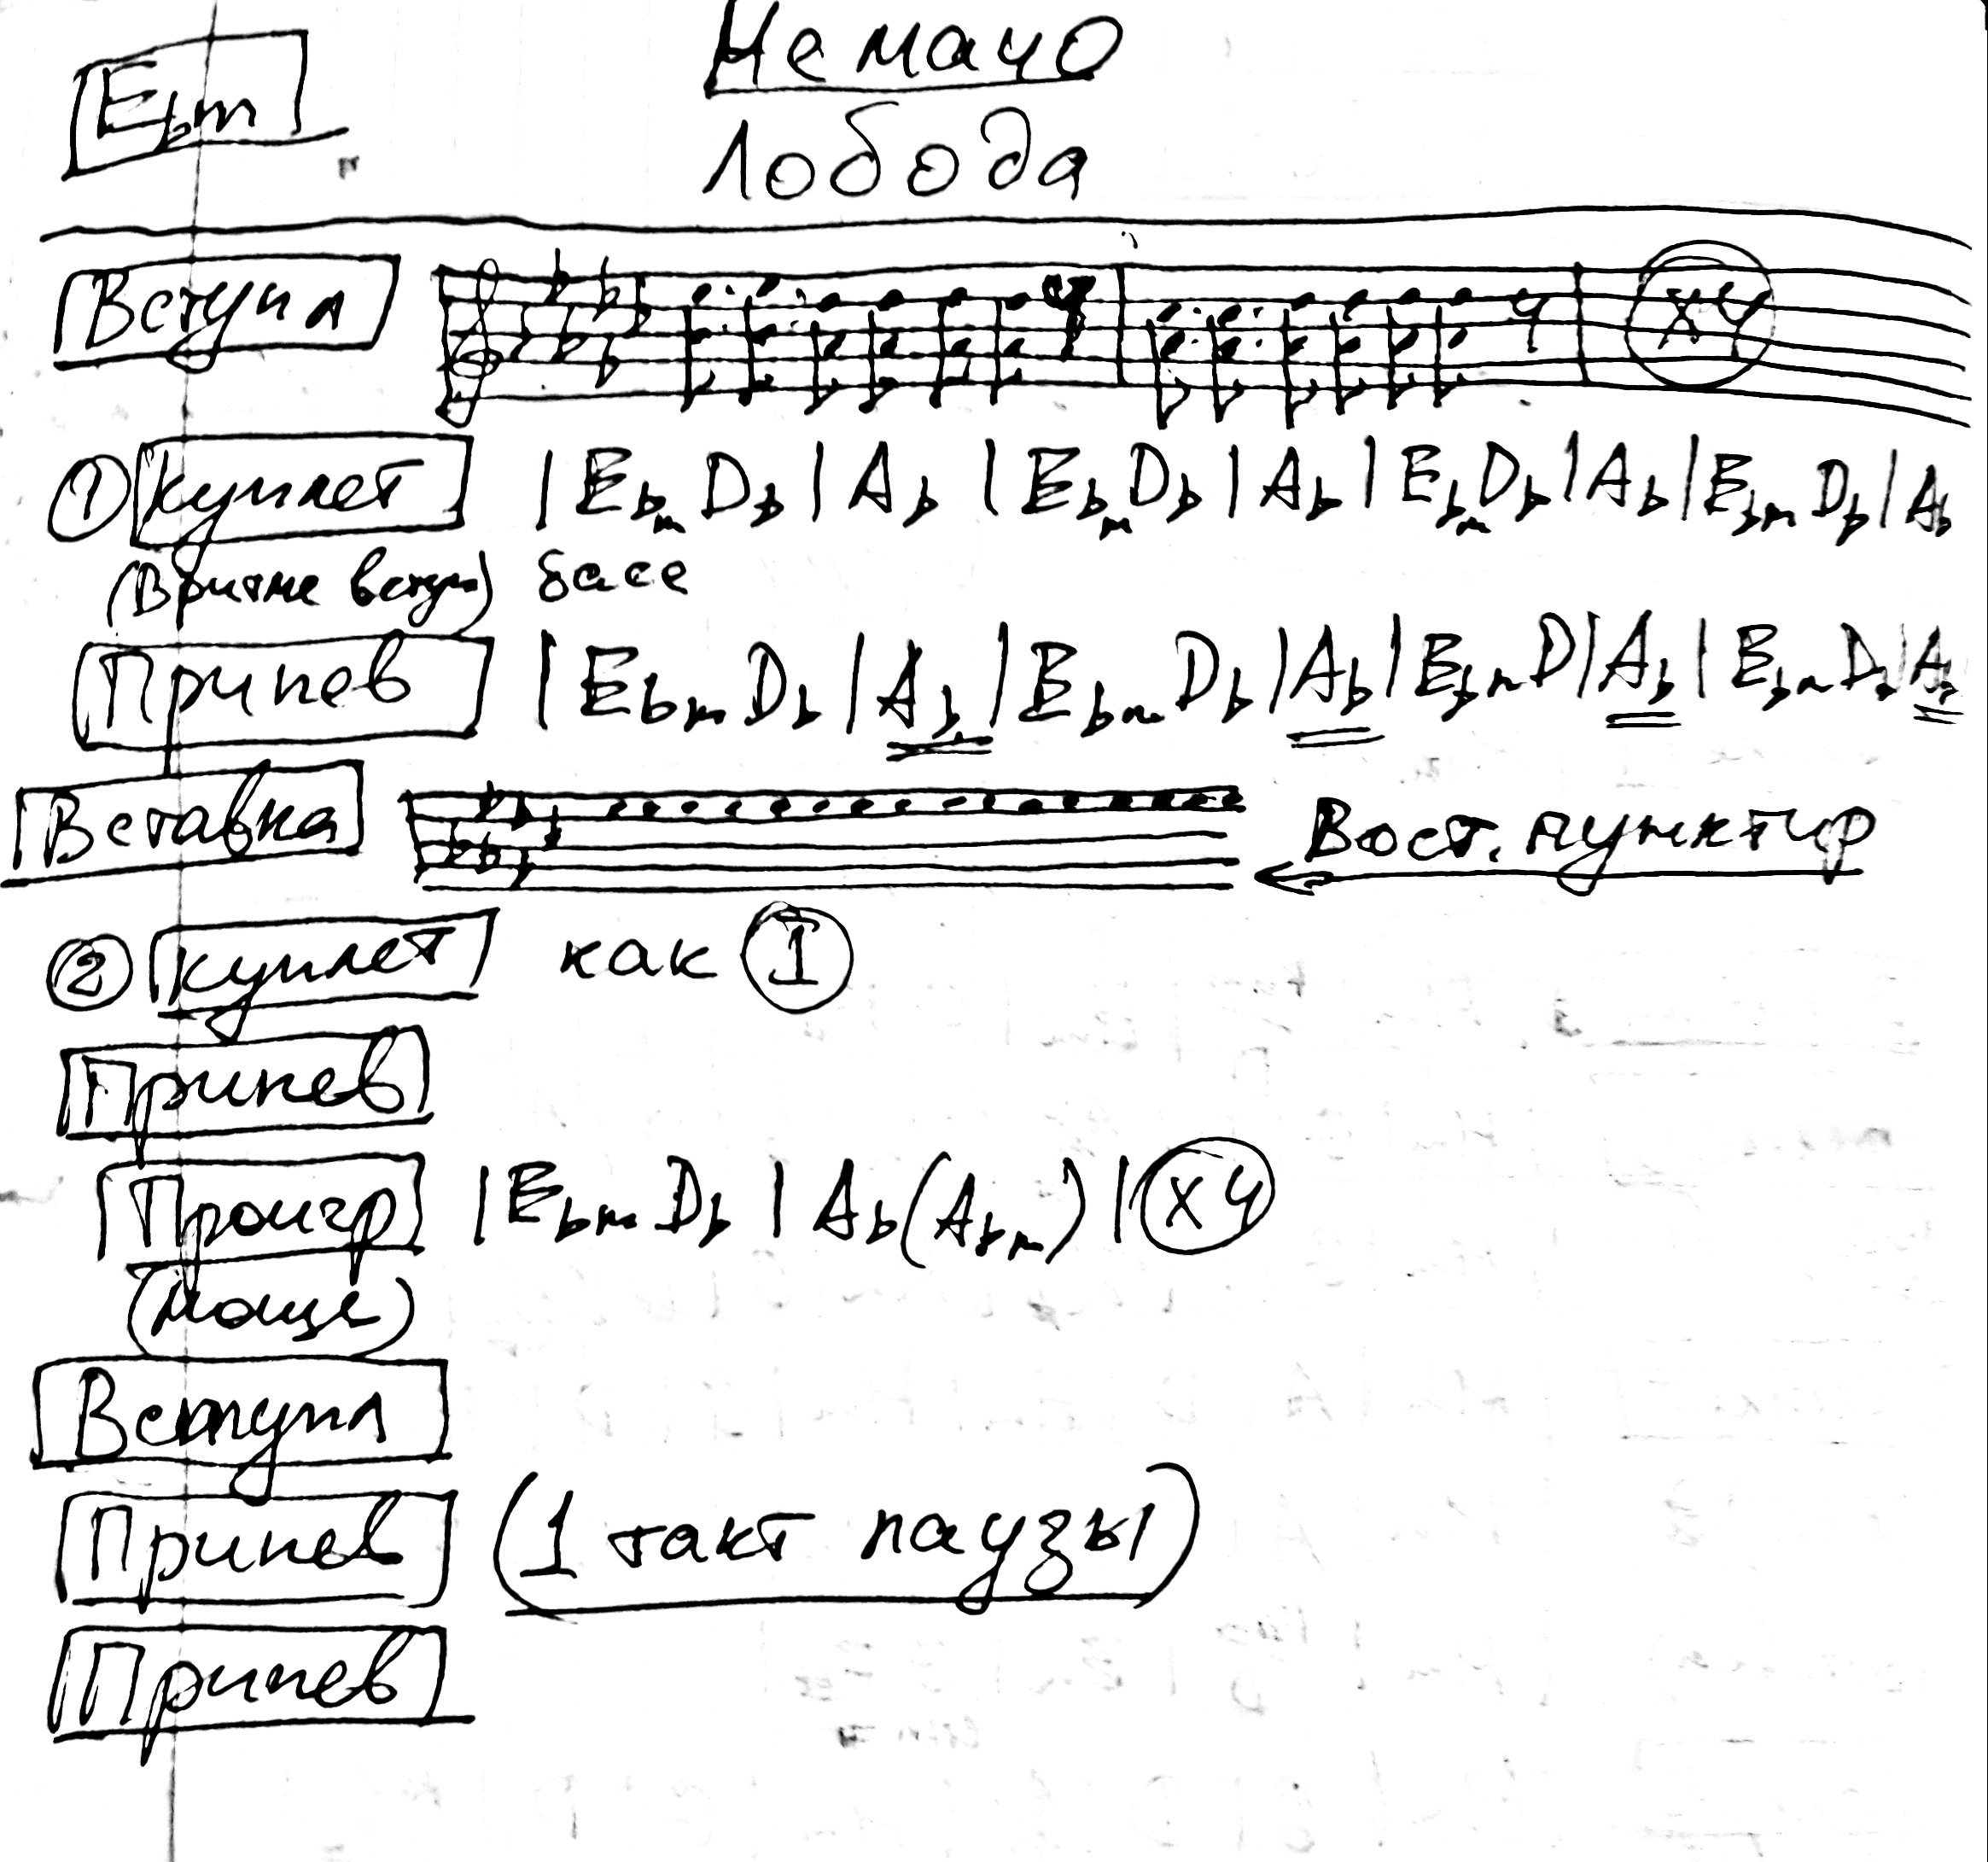 Ebm
Не мачо
Лобода
Вступл
x4
① Куплет | Ebm Db | Ab | Ebm Db | Ab | Ebm Db | Ab | Ebm Db | Ab
(В ритме вступ) басе
Припев | Ebm Db | Ab | Ebm Db | Ab | Ebm D | Ab | Ebm Db | Ab
Вставка Вост. пунктир
② куплет как ①
Припев
Проигр | Ebm Db | Ab (Abm) | x4
(тоще)
Вступл
Припев (1 такт паузы)
Припев